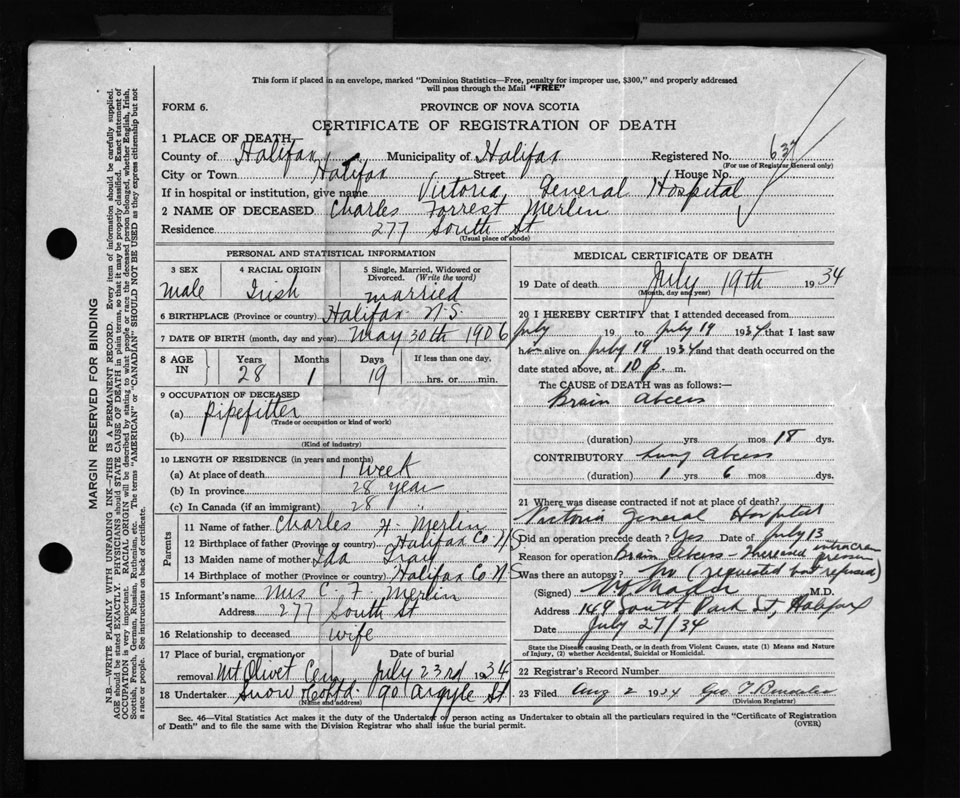 This form if placed in an envelope, marked "Dominion Statistics—Free, penalty for improper use, $300," and properly addressed
will pass through the Mail "FREE"
FORM 6.
PROVINCE OF NOVA SCOTIA
CERTIFICATE OF REGISTRATION OF DEATH
1 PLACE OF DEATH—
County of Halifax Municipality of Halifax Registered No. 637
(For use of Registrar General only)
City or Town Halifax Street House No.
If in hospital or institution, give name Victoria General Hospital
2 NAME OF DECEASED Charles Forrest Merlin
Residence 277 South St
(Usual place of abode)
PERSONAL AND STATISTICAL INFORMATION
3 SEX 4 RACIAL ORIGIN 5 Single, Married, Widowed or Divorced. (Write the word)
Male Irish married
6 BIRTHPLACE (Province or country) Halifax N.S.
7 DATE OF BIRTH (month, day and year) May 30th 1906
8 AGE IN Years Months Days If less than one day,
28 1 19 hrs. or min.
9 OCCUPATION OF DECEASED
(a) Pipefitter
(Trade or occupation or kind of work)
(b)
(Kind of industry)
10 LENGTH OF RESIDENCE (in years and months)
(a) At place of death 1 week
(b) In province 28 year
(c) In Canada (if an immigrant) 28 "
Parents
11 Name of father Charles H. Merlin
12 Birthplace of father (Province or country) Halifax Co N S
13 Maiden name of mother Ida Gray
14 Birthplace of mother (Province or country) Halifax Co N S
15 Informant's name Mrs C. F. Merlin
Address 277 South St
16 Relationship to deceased wife
17 Place of burial, cremation or removal Mt Olivet Cem Date of burial July 23rd 1934
18 Undertaker Snow & Co Ltd 90 Argyle St
(Name and address)
MEDICAL CERTIFICATE OF DEATH
19 Date of death July 19th 1934
(Month, day and year)
20 I HEREBY CERTIFY that I attended deceased from
July 19 to July 19 1934 that I last saw
him alive on July 19 1934 and that death occurred on the
date stated above, at 10 p. m.
The CAUSE of DEATH was as follows:—
Brain Abcess
(duration) yrs mos 18 dys.
CONTRIBUTORY Lung Abcess
(duration) 1 yrs 6 mos dys.
21 Where was disease contracted if not at place of death?
Victoria General Hospital
Did an operation precede death? Yes Date of July 13
Reason for operation Brain Abcess - intracran pressure
Was there an autopsy? No (requested but refused)
(Signed) M.D.
Address 149 South Park St, Halifax
Date July 27/34
State the Disease causing Death, or in death from Violent Causes, state (1) Means and Nature
of Injury, (2) whether Accidental, Suicidal or Homicidal.
22 Registrar's Record Number
23 Filed Aug 2 1934 Geo T
(Division Registrar)
Sec. 46—Vital Statistics Act makes it the duty of the Undertaker or person acting as Undertaker to obtain all the particulars required in the "Certificate of Registration
of Death" and to file the same with the Division Registrar who shall issue the burial permit. (OVER)
MARGIN RESERVED FOR BINDING
N.B.—WRITE PLAINLY WITH UNFADING INK—THIS IS A PERMANENT RECORD. Every item of information should be carefully supplied.
AGE should be stated EXACTLY. PHYSICIANS should STATE CAUSE OF DEATH in plain terms, so that it may be properly classified. Exact statement of
OCCUPATION is very important. RACIAL ORIGIN will be described by stating to what people or race the deceased person belonged, whether English, Irish,
Scottish, French, German, Russian, Ruthenian, etc. The terms "AMERICAN" or "CANADIAN" SHOULD NOT BE USED as they express citizenship but not
a race or people. See instructions on back of certificate.